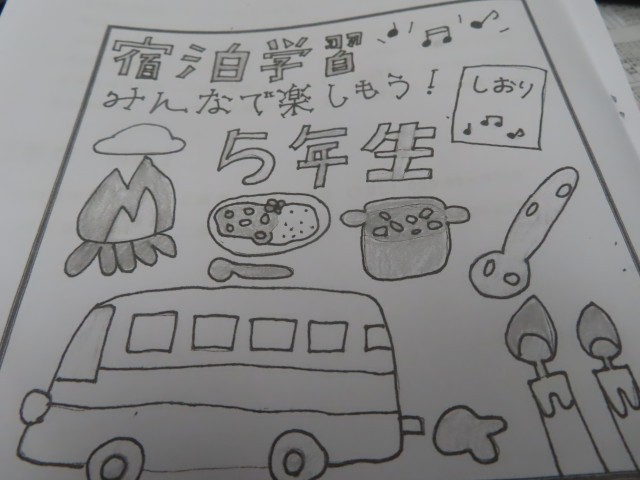 宿泊学習
みんなで楽しもう!
しおり
5年生